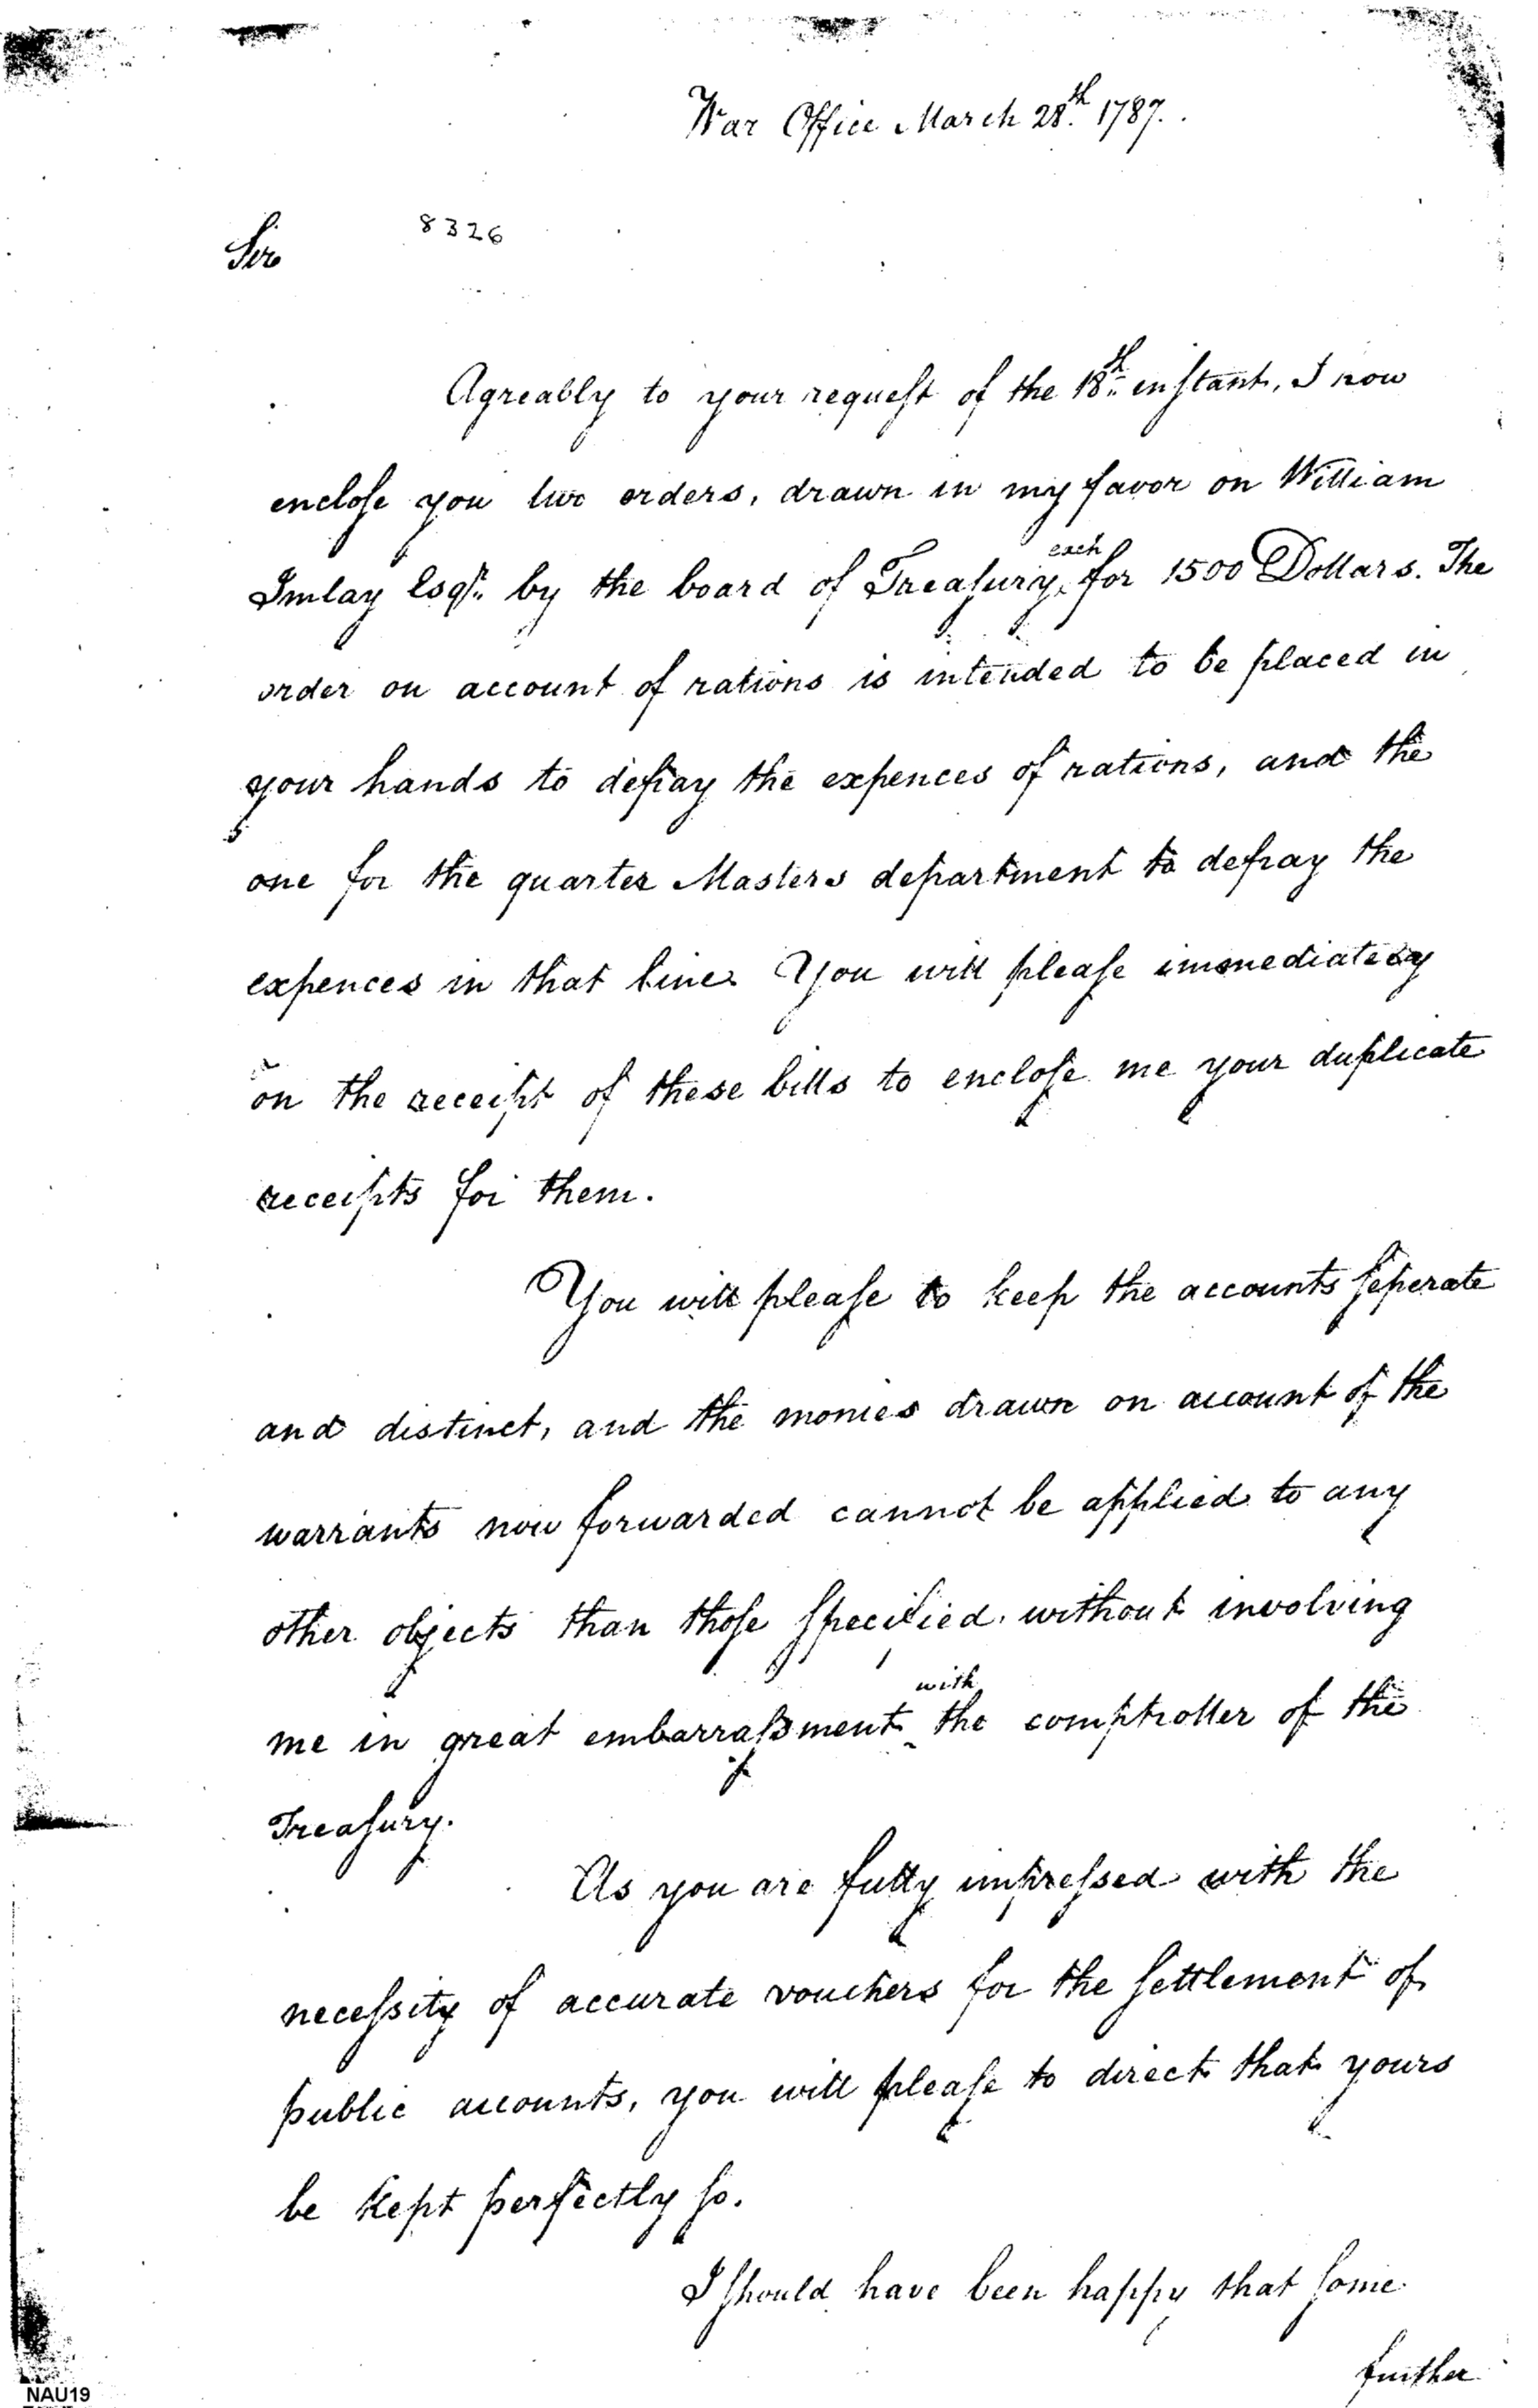 War Office March 28th. 1787.
Sir
8326
Agreably to your request of the 18th. instant, I now
enclose you two orders, drawn in my favor on William
Imlay Esqr. by the board of Treasury each for 1500 Dollars. The
order on account of rations is intended to be placed in
your hands to defray the expences of rations, and the
one for the quarter Masters department to defray the
expences in that line. You will please immediately
on the receipt of these bills to enclose me your duplicate
receipts for them.
You will please to keep the accounts seperate
and distinct, and the monies drawn on account of the
warrants now forwarded cannot be applied to any
other objects than those specified, without involving
me in great embarrassment with the comptroller of the
Treasury.
As you are fully impressed with the
necessity of accurate vouchers for the settlement of
public accounts, you will please to direct that yours
be kept perfectly so.
I should have been happy that some
further
NAU19